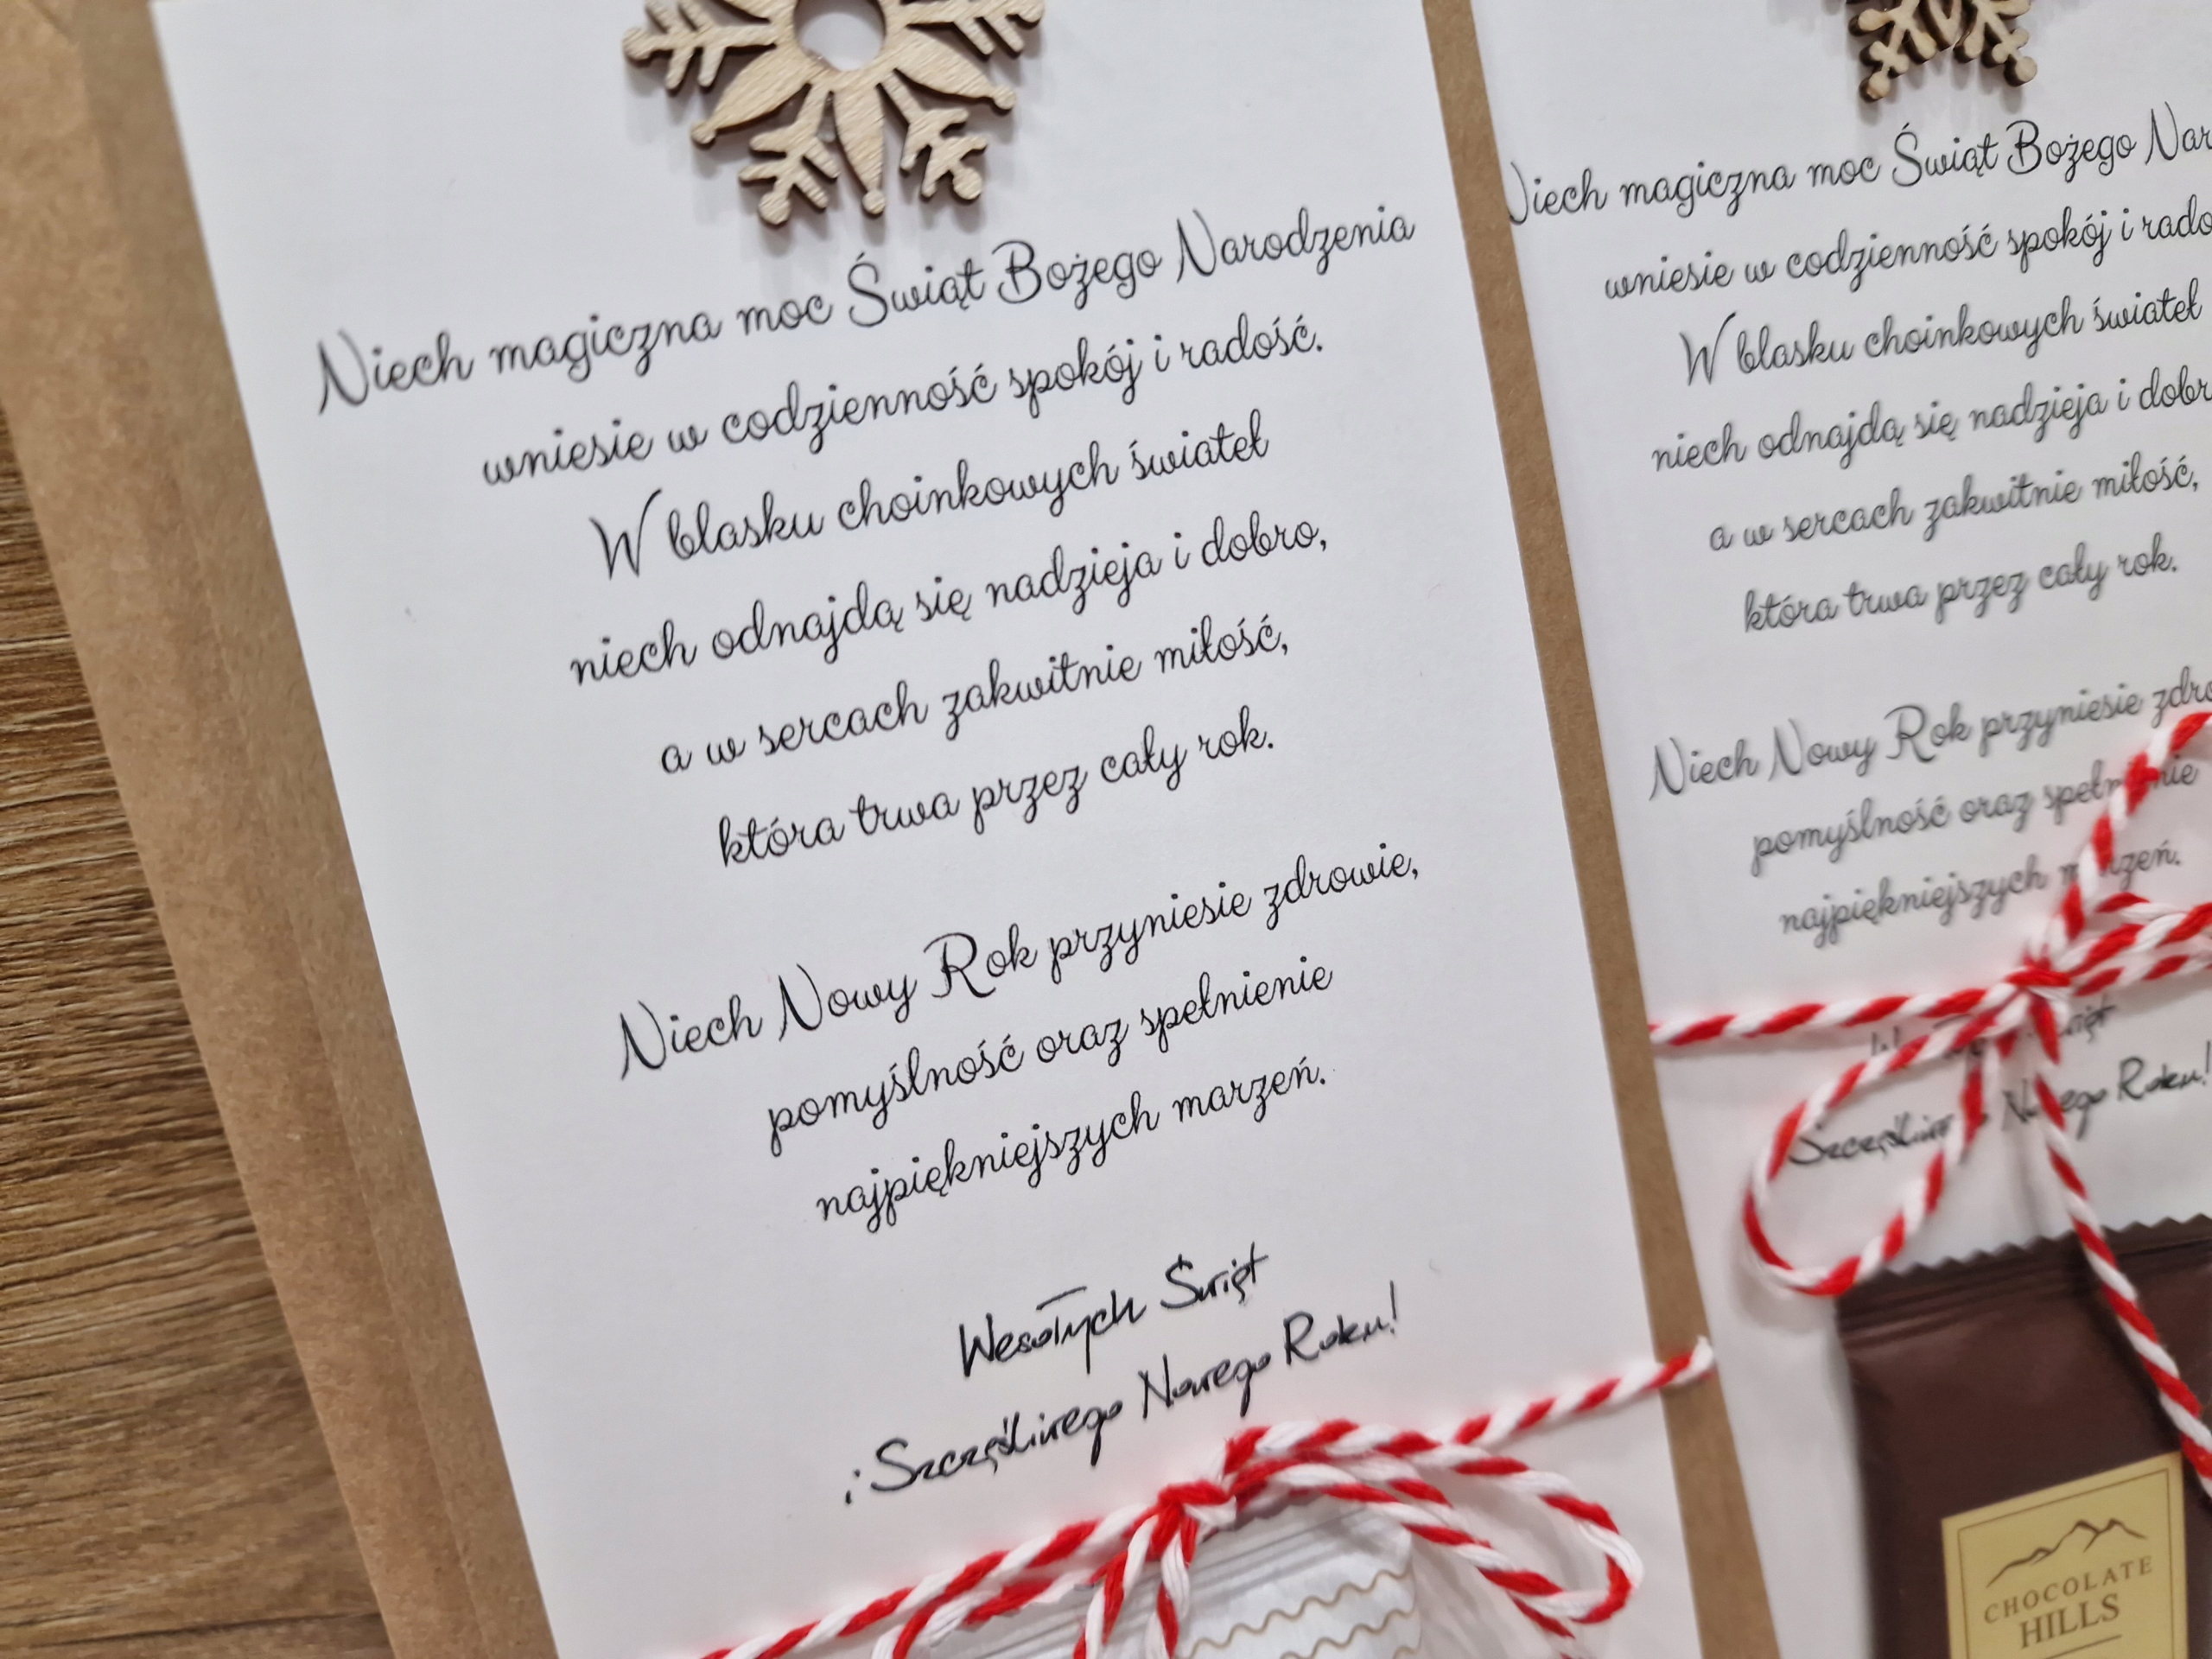 Niech magiczna moc Świąt Bożego Narodzenia
wniesie w codzienność spokój i radość.
W blasku choinkowych świateł
niech odnajdą się nadzieja i dobro,
a w sercach zakwitnie miłość,
która trwa przez cały rok.
Niech Nowy Rok przyniesie zdrowie,
pomyślność oraz spełnienie
najpiękniejszych marzeń.
Wesołych Świąt
i Szczęśliwego Nowego Roku!
Niech magiczna moc Świąt Bożego Nar
wniesie w codzienność spokój i rado
W blasku choinkowych świateł
niech odnajdą się nadzieja i dobr
a w sercach zakwitnie miłość,
która trwa przez cały rok.
Niech Nowy Rok przyniesie zdro
pomyślność oraz spełnienie
najpiękniejszych marzeń.
Szczęśliwego Nowego Roku!
CHOCOLATE
HILLS